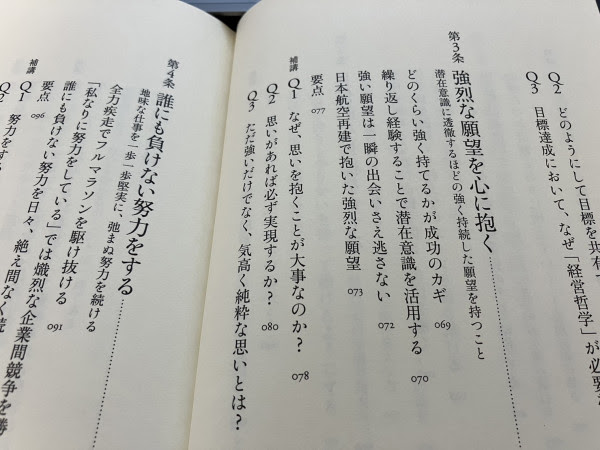 Q2 どのようにして目標を共有
Q3 目標達成において、なぜ「経営哲学」が必要
第3条 強烈な願望を心に抱く
潜在意識に透徹するほどの強く持続した願望を持つこと
どのくらい強く持てるかが成功のカギ 069
繰り返し経験することで潜在意識を活用する 070
強い願望は一瞬の出会いさえ逃さない 072
日本航空再建で抱いた強烈な願望 073
要点 077
補講 Q1 なぜ、思いを抱くことが大事なのか? 078
Q2 思いがあれば必ず実現するか? 080
Q3 ただ強いだけでなく、気高く純粋な思いとは?
第4条 誰にも負けない努力をする
地味な仕事を一歩一歩堅実に、弛まぬ努力を続ける
全力疾走でフルマラソンを駆け抜ける 091
「私なりに努力をしている」では熾烈な企業間競争を勝
誰にも負けない努力を日々、絶え間なく続
要点 096
補講 Q1
Q2 努力をする